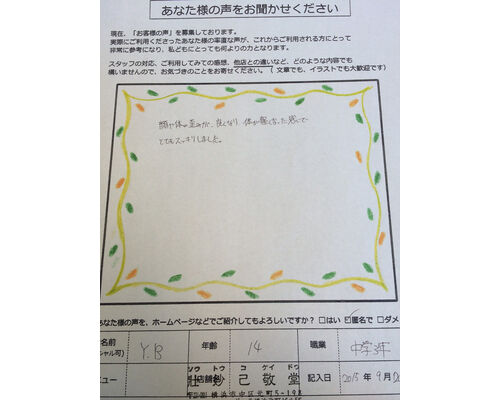 あなた様の声をお聞かせください
現在、「お客様の声」を募集しております。
実際にご利用くださったあなた様の率直な声が、これからご利用される方にとって
非常に参考になり、私どもにとっても何よりの力となります。
スタッフの対応、ご利用してみての感想、他店との違いなど、どのような内容でも
構いませんので、お気づきのことをお寄せください。（文章でも、イラストでも大歓迎です）
顔や体の歪みが、良くなり、体が軽くなった感じで
とてもスッキリしました。
あなた様の声を、ホームページなどでご紹介してもよろしいですか？ □はい ☑匿名で □ダメ
名前 Y.B 年齢 14 職業 中学3年
シャル可)
ニュー ソウ トウ コ ケイ ドウ
己敬堂 記入日 2015年9月
横浜市中区元町5-198